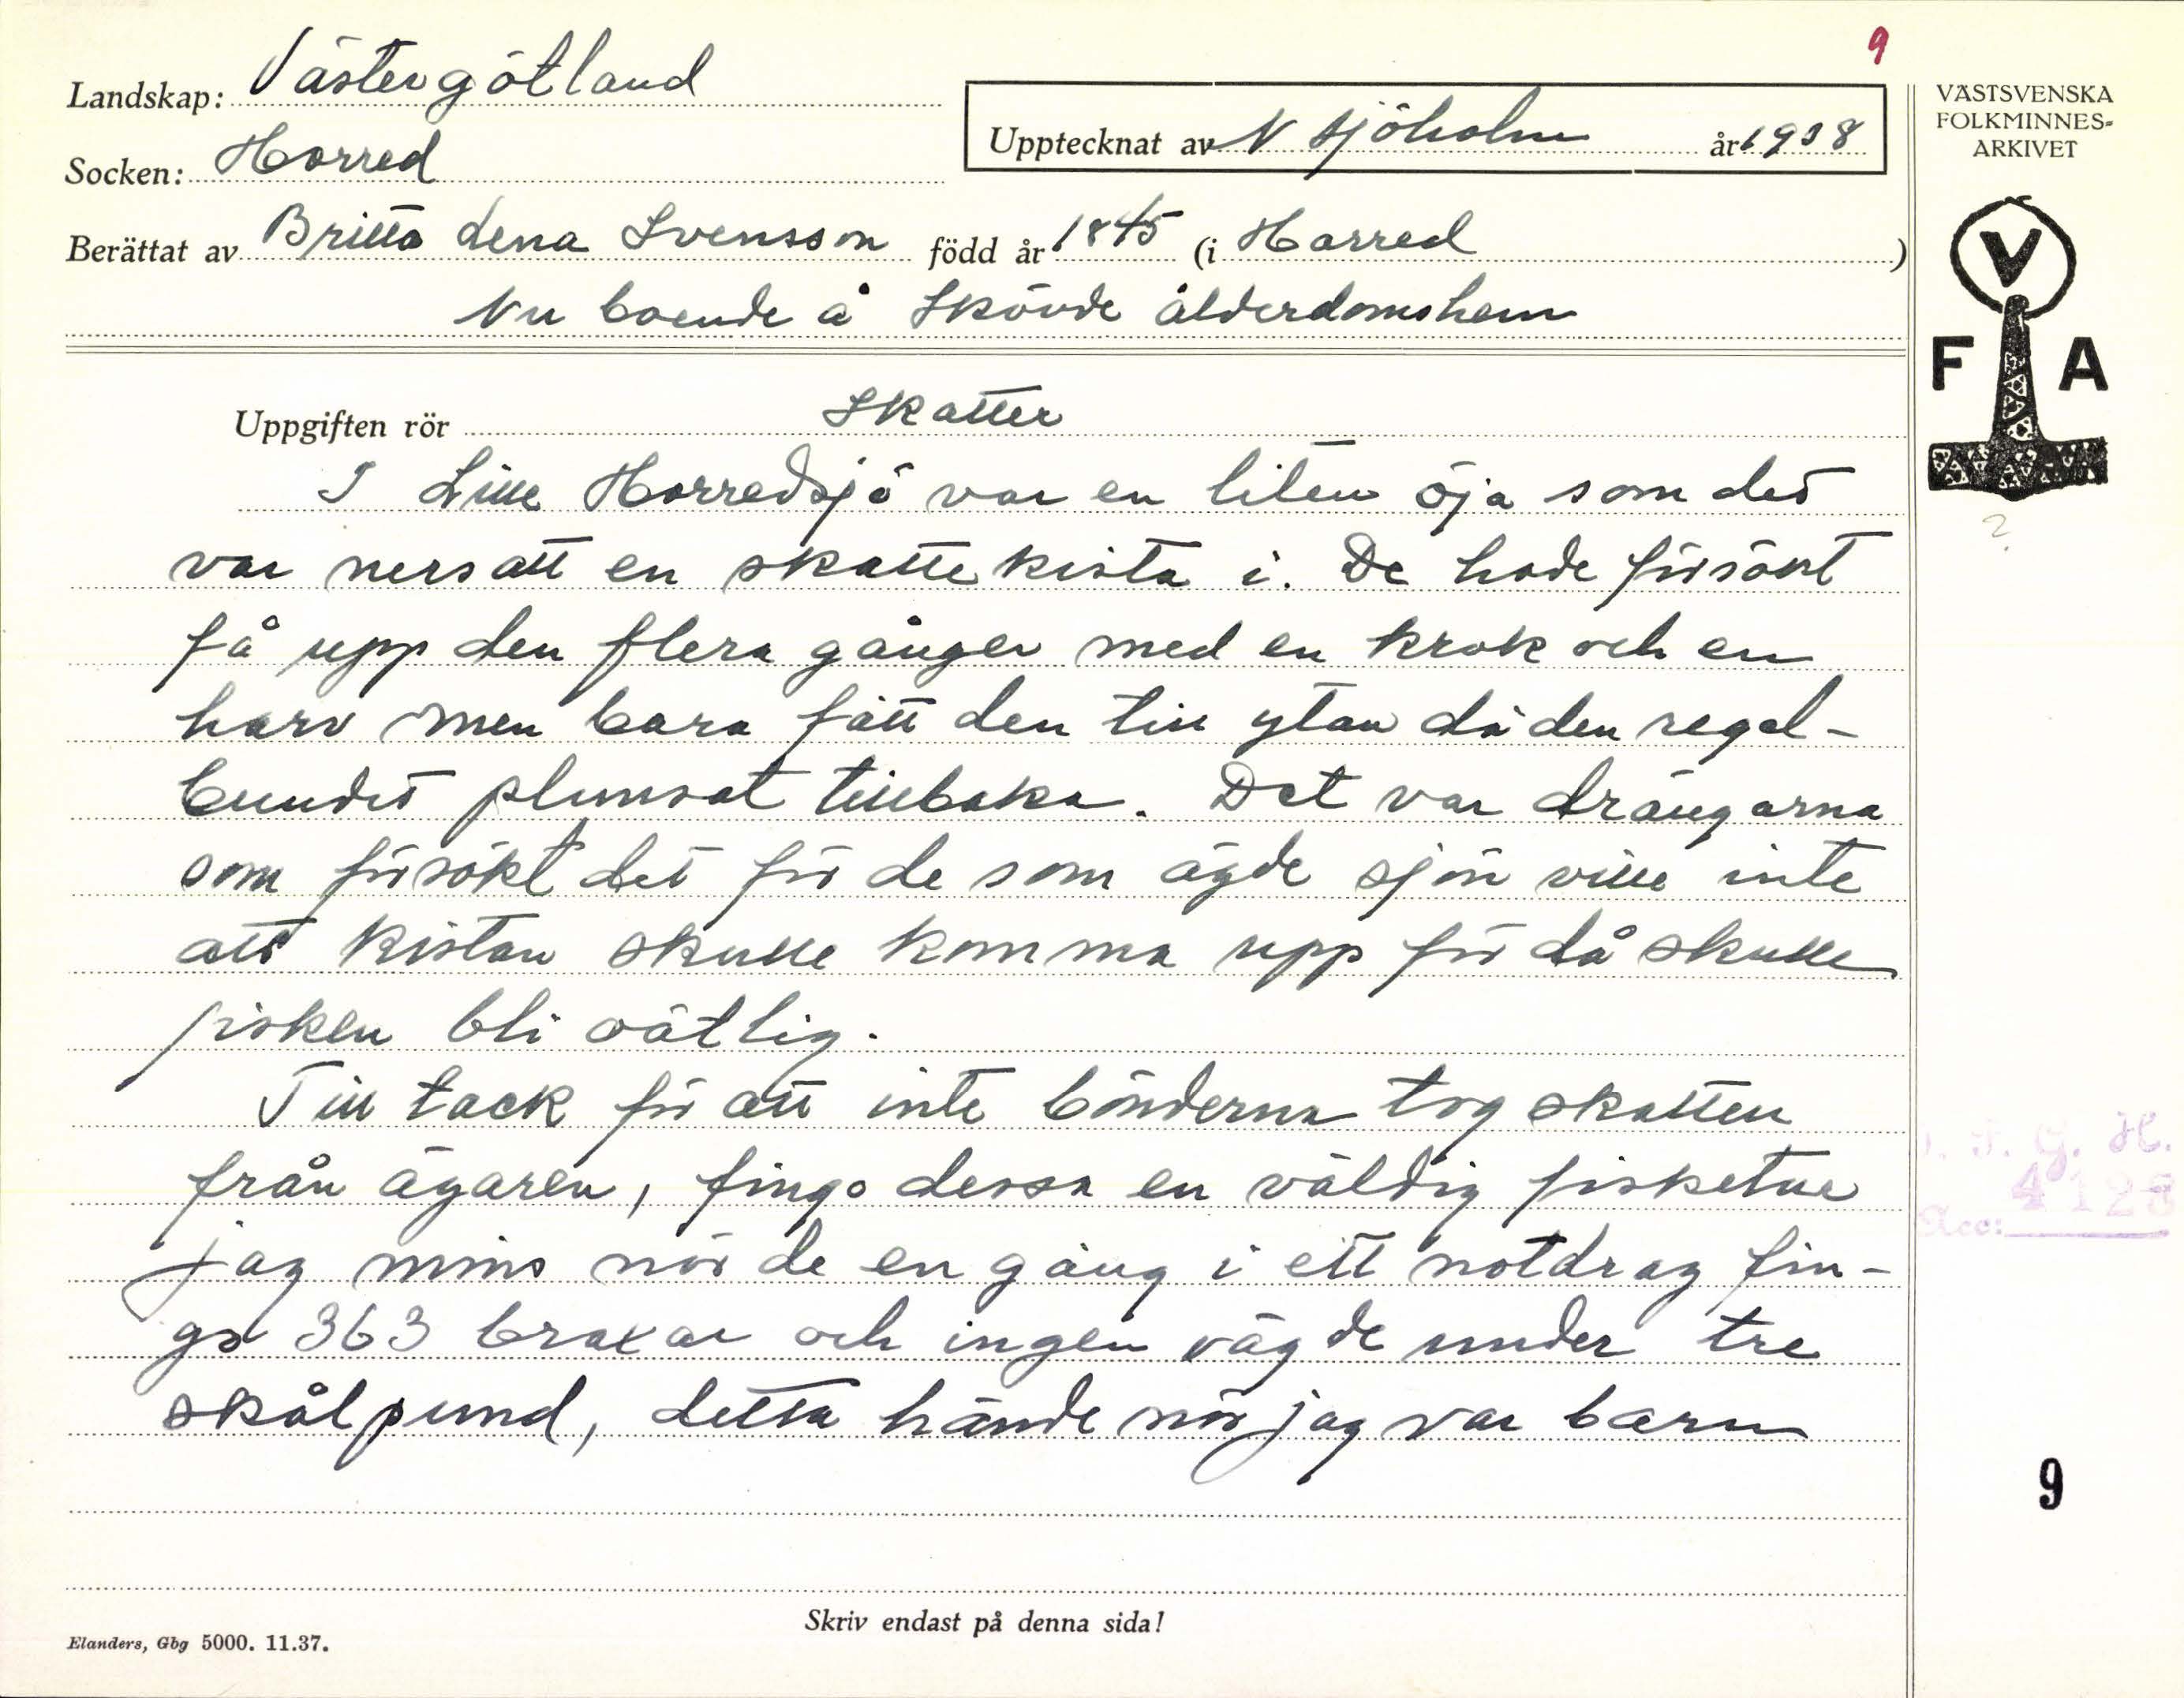 9
Landskap: Västergötland
Socken: Horred
Upptecknat av N Sjöholm år 1938
Berättat av Britta Lena Svensson född år 1845 (i Horred)
Nu boende å Skövde ålderdomshem
VÄSTSVENSKA
FOLKMINNES-
ARKIVET
V
F A
?
Uppgiften rör Skatter
I Lille Horredsjö var en liten öja som det
var nersatt en skattekista i. De hade försökt
få upp den flera gånger med en krok och en
harv men bara fått den till ytan då den regel-
bundet plumsat tillbaka. Det var drängarna
som försökt det för de som ägde sjön ville inte
att kistan skulle komma upp för då skulle
fisken bli oätlig.
Till tack för att inte bönderna tog skatten
från ägaren, fingo dessa en väldig fisketur
jag mins när de en gång i ett notdrag fin-
go 363 braxar och ingen vägde under tre
skålpund, detta hände när jag var barn
I. F. G. H.
Acc: 4128
9
Skriv endast på denna sida!
Elanders, Gbg 5000. 11.37.